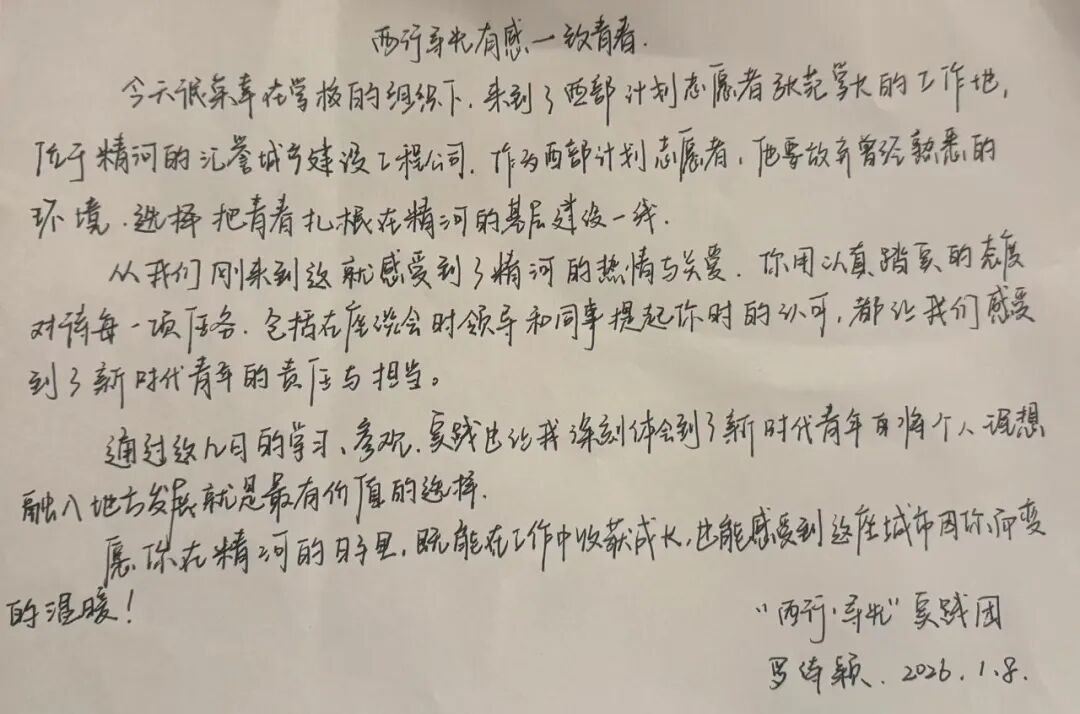 西行寻光有感一致青春.
今天很荣幸在学校的组织下,来到了西部计划志愿者张苑学长的工作地,
位于精河的汇誉城乡建设工程公司.作为西部计划志愿者,他要放弃曾经熟悉的
环境.选择把青春扎根在精河的基层建设一线.
从我们刚来到这就感受到了精河的热情与关爱.你用认真踏实的态度
对待每一项任务.包括在座谈会时领导和同事提起你时的认可,都让我们感受
到了新时代青年的责任与担当。
通过这几日的学习、参观、实践也让我深刻体会到了新时代青年 将个人理想
融入地方发展就是最有价值的选择.
愿你在精河的日子里,既能在工作中收获成长,也能感受到这座城市因你而变
的温暖!
“西行·寻光”实践团
罗 颖. 2026.1.8.